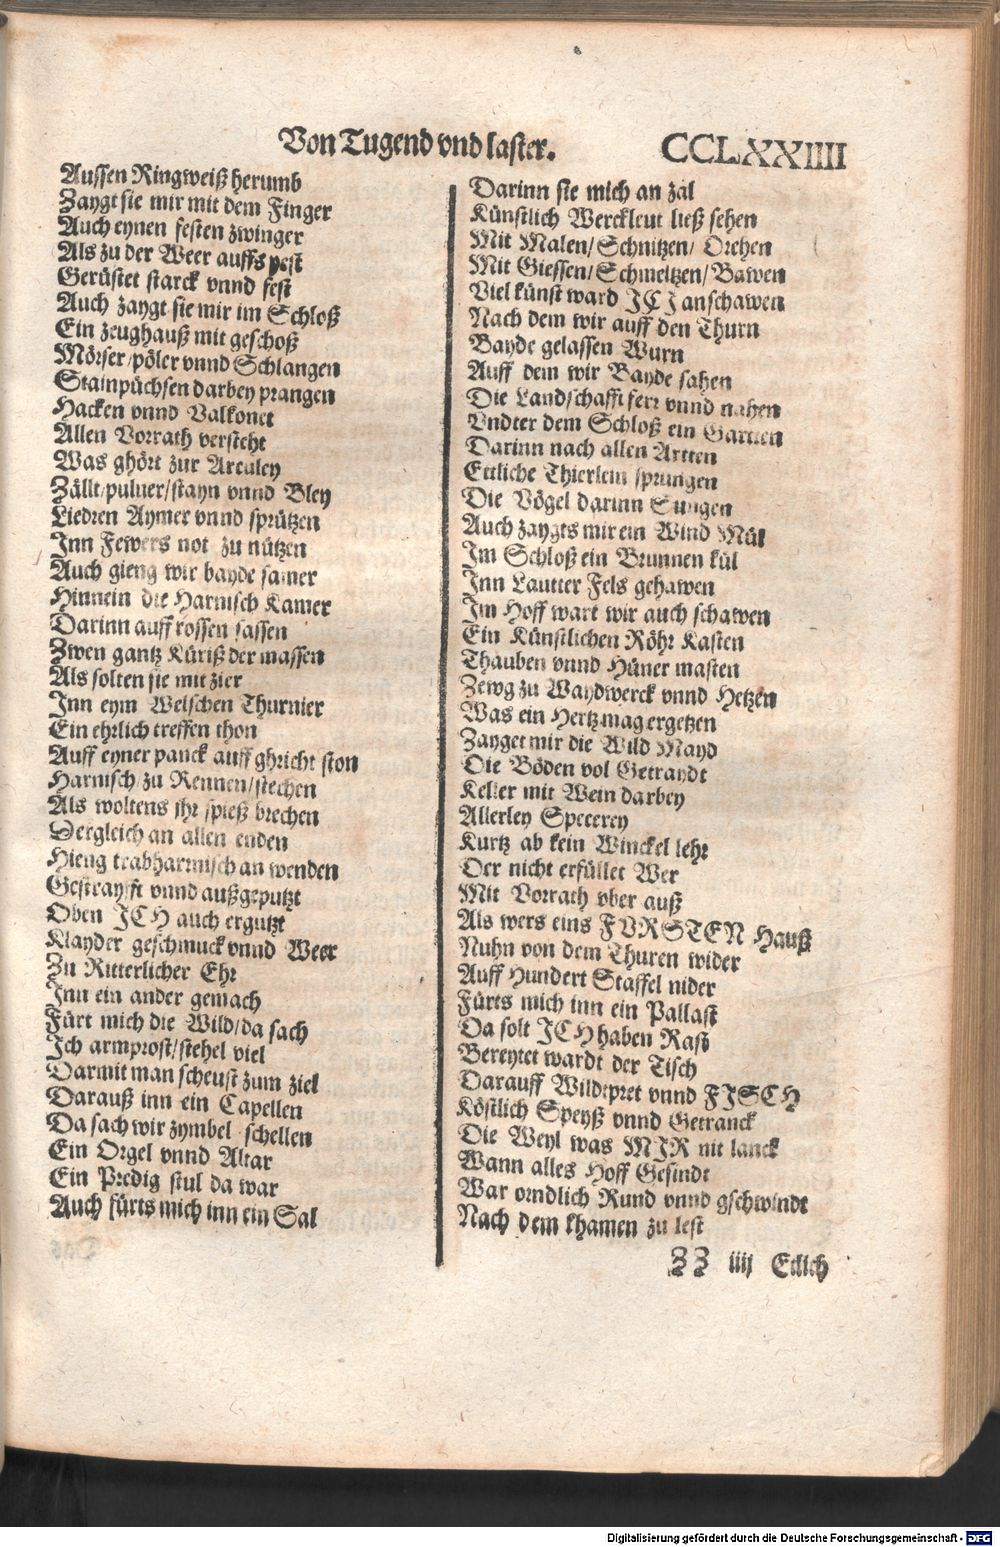 Von Tugend vnd laster. CCLXXIIII
Aussen Ringweiß herumb
Zaygt sie mir mit dem Finger
Auch eynen festen zwinger
Als zu der Weer auffs pest
Gerüstet starck vnnd fest
Auch zaygt sie mir im Schloß
Ein zeughauß mit geschoß
Mörser/pöler vnnd Schlangen
Stainpüchsen darbey prangen
Hacken vnnd Valkonet
Allen Vorrath versteht
Was ghört zur Arculey
Zällt/puluer/stayn vnnd Bley
Liedren Aymer vnnd sprützen
Inn Fewers not zu nützen
Auch gieng wir bayde samer
Hinnein die Harnisch Kamer
Darinn auff rossen sassen
Zwen gantz Küriß der massen
Als solten sie mit zier
Inn eym Welschen Thurnier
Ein ehrlich treffen thon
Auff eyner panck auff ghricht ston
Harnisch zu Rennen/stechen
Als woltens jhr spieß brechen
Dergleich an allen enden
Hieng trabharnisch an wenden
Gestrayfft vnnd außgeputzt
Oben ICH auch ergutzt
Klayder geschmuck vnnd Weer
Zu Ritterlicher Ehr
Inn ein ander gemach
Fürt mich die Wild/da sach
Ich armprost/stehel viel
Darmit man scheust zum ziel
Darauß inn ein Capellen
Da sach wir zymbel schellen
Ein Orgel vnnd Altar
Ein Predig stul da war
Auch fürts mich inn ein Sal
Darinn sie mich an zal
Künstlich Werckleut ließ sehen
Mit Malen/Schnitzen/ Drehen
Mit Giessen/Schmeltzen/Bawen
Viel künst ward ICH anschawen
Nach dem wir auff den Thurn
Bayde gelassen Wurn
Auff dem wir Bayde sahen
Die Landschafft ferr vnnd nahen
Vndter dem Schloß ein Gartten
Darinn nach allen Artten
Ettliche Thierlein sprungen
Die Vögel darinn Sungen
Auch zaygts mir ein Wind Mül
Im Schloß ein Brunnen kül
Inn Lautter Fels gehawen
Im Hoff wart wir auch schawen
Ein Künstlichen Röhr Kasten
Thauben vnnd Hüner masten
Zewg zu Waydwerck vnnd Hetzen
Was ein Hertz mag ergetzen
Zayget mir die Wild Mayd
Die Böden vol Getraydt
Keller mit Wein darbey
Allerley Specerey
Kurtz ab kein Winckel lehr
Der nicht erfüllet Wer
Mit Vorrath vber auß
Als wers eins FVRSTEN Hauß
Nuhn von dem Thuren wider
Auff Hundert Staffel nider
Fürts mich inn ein Pallast
Da solt ICH haben Rast
Bereytet wardt der Tisch
Darauff Wildtpret vnnd FISCH
Köstlich Speyß vnnd Getranck
Die Weyl was MIR nit lanck
Wann alles Hoff Gesindt
War orndlich Rund vnnd gschwindt
Nach dem khamen zu lest
ZZ iiij Etlich
Digitalisierung gefördert durch die Deutsche Forschungsgemeinschaft - DFG